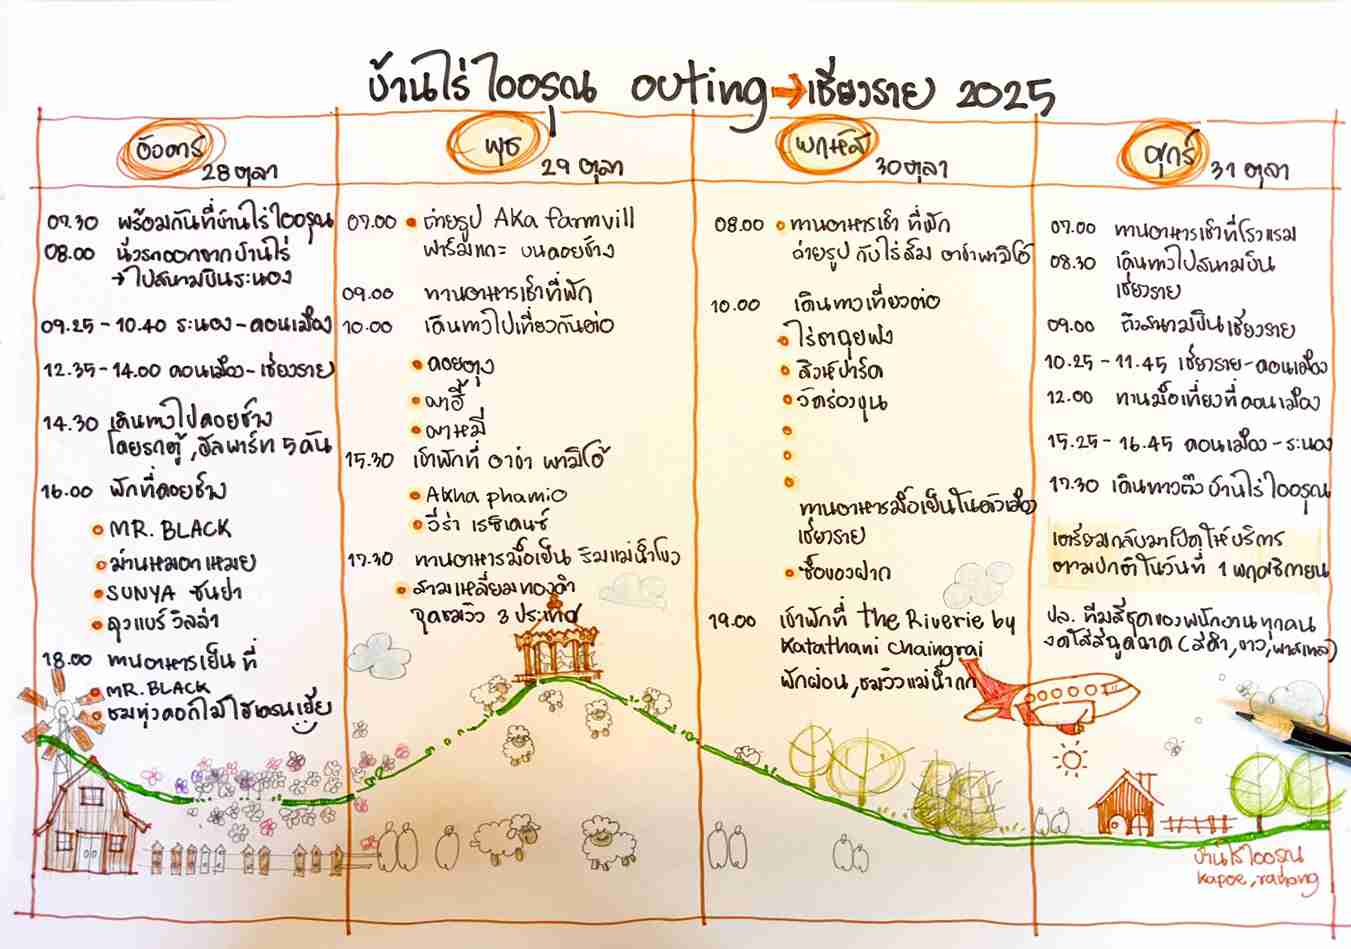 บ้านไร่ไออรุณ outing → เชียงราย 2025
อังคาร
28 ตุลา
07.30 พร้อมกันที่บ้านไร่ไออรุณ
08.00 นั่งรถออกจากบ้านไร่
→ ไปสนามบินระนอง
09.25 - 10.40 ระนอง - ดอนเมือง
12.35 - 14.00 ดอนเมือง - เชียงราย
14.30 เดินทางไปดอยช้าง
โดยรถตู้,
16.00 พักที่ดอยช้าง
• MR. BLACK
• ม่านหมอกเหมย
• SUNYA ซันย่า
• ลุงแบร์ วิลล่า
18.00 ทานอาหารเย็น ที่
• MR. BLACK
• ชมทุ่งดอกไม้ไฮเดรนเยีย
พุธ
29 ตุลา
07.00 • ถ่ายรูป AKa farmvill
ฟาร์มแกะ บนดอยช้าง
09.00 ทานอาหารเช้าที่พัก
10.00 เดินทางไปเที่ยวกันต่อ
• ดอยตุง
• ผาฮี้
• ผาหมี
15.30 เข้าพักที่ อาข่า ฟามิโอ้
• Akha phamio
• วีร่า เรซิเดนซ์
17.30 ทานอาหารมื้อเย็น ริมแม่น้ำโขง
• สามเหลี่ยมทองคำ
จุดชมวิว 3 ประเทศ
พฤหัส
30 ตุลา
08.00 • ทานอาหารเช้า ที่พัก
ถ่ายรูป กับไร่ส้ม อาข่าฟามิโอ้
10.00 เดินทางเที่ยวต่อ
• ไร่ชาฉุยฟง
• สิงห์ปาร์ค
• วัดร่องขุน
•
•
•
ทานอาหารมื้อเย็นในตัวเมือง
เชียงราย
• ซื้อของฝาก
19.00 เข้าพักที่ the Riverie by
Katathani chaingrai
พักผ่อน, ชมวิวแม่น้ำกก
ศุกร์
31 ตุลา
07.00 ทานอาหารเช้าที่โรงแรม
08.30 เดินทางไปสนามบิน
เชียงราย
09.00 ถึงสนามบินเชียงราย
10.25 - 11.45 เชียงราย - ดอนเมือง
12.00 ทานมื้อเที่ยงที่ดอนเมือง
15.25 - 16.45 ดอนเมือง - ระนอง
17.30 เดินทางถึงบ้านไร่ไออรุณ
เตรียมกลับมาเปิดให้บริการ
ตามปกติในวันที่ 1 พฤศจิกายน
ปล. ธีมสีชุดของพนักงานทุกคน
งดใส่สีฉูดฉาด (สีดำ, ขาว, พาสเทล)
บ้านไร่ไออรุณ
kapoe, ranong